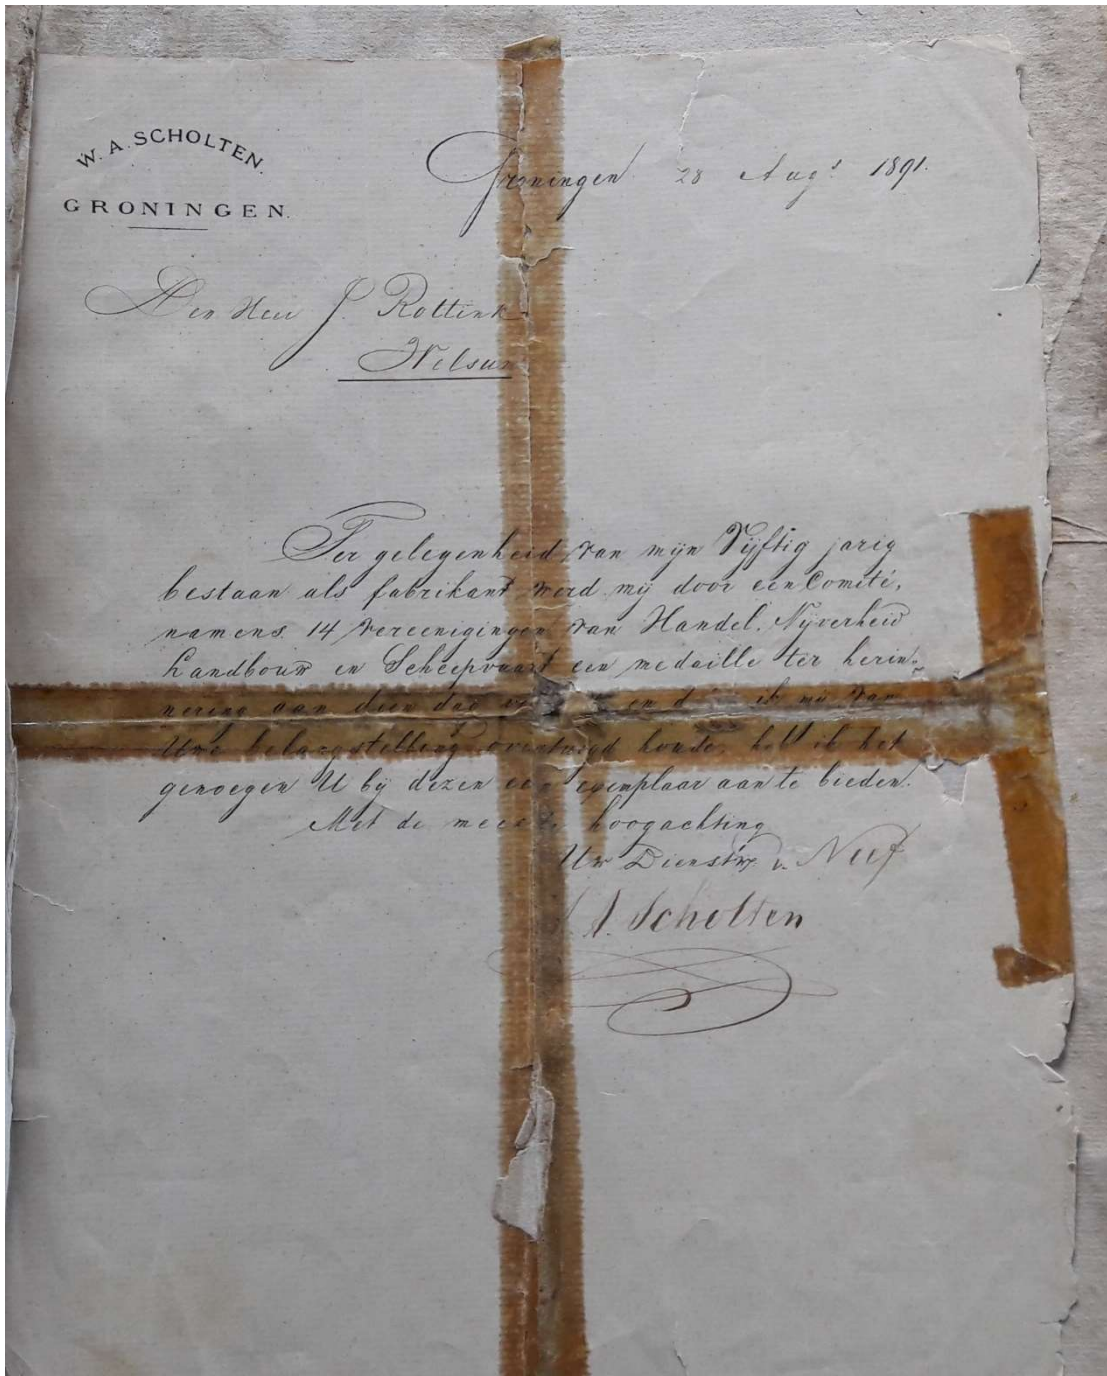 W. A. SCHOLTEN.
GRONINGEN.
Groningen 28 Augs 1891.
Den Heer J. Rottink
Ter gelegenheid van mijn Vijftig jarig
bestaan als fabrikant werd mij door een Comité,
namens 14 Vereenigingen van Handel, Nijverheid
Landbouw en Scheepvaart een medaille ter herin-
nering aan dien dag en ik mij van
Uwe belangstelling overtuigd houde, heb ik het
genoegen U bij dezen een exemplaar aan te bieden.
Met de meeste hoogachting
Uw Dienstw. v. Neef
A. Scholten